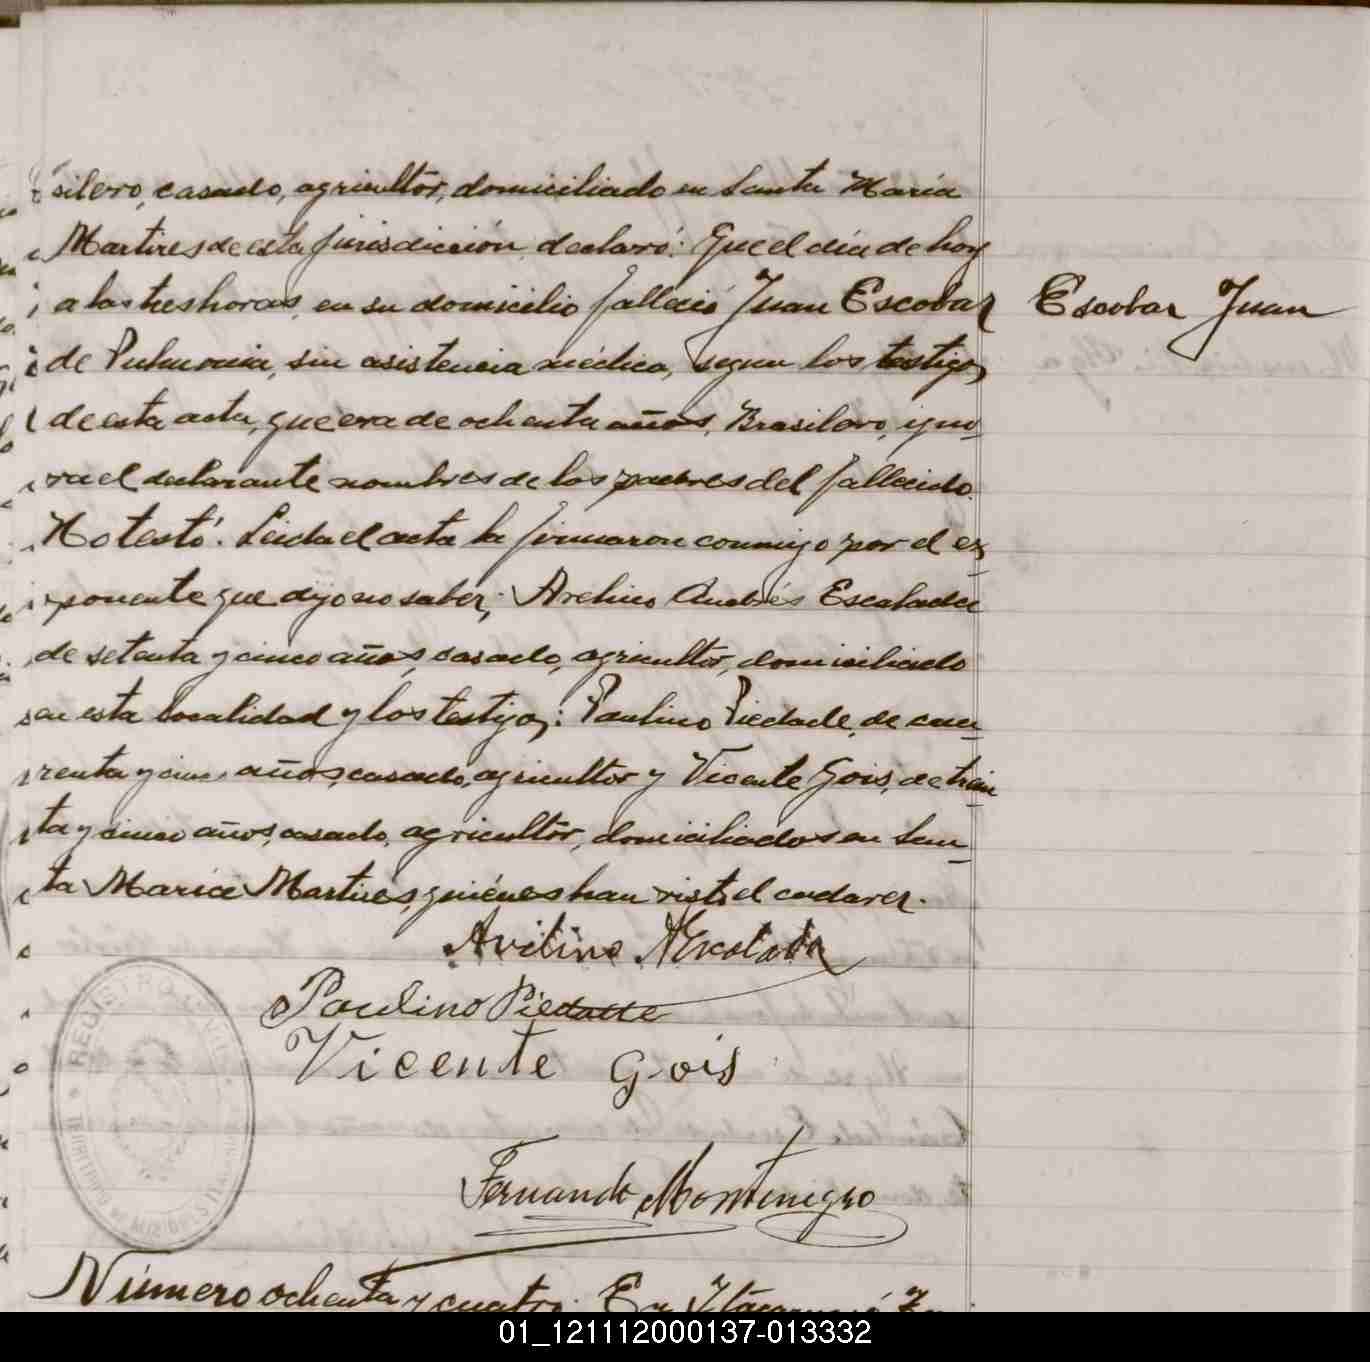 silero, casado, agricultor, domiciliado en Santa María
Martires de esta jurisdicción, declaró: Que el día de hoy
a las tres horas, en su domicilio falleció Juan Escobar
Escobar Juan
de Pulmonia, sin asistencia médica, segun los testigos
de esta acta, que era de ochenta años, Brasilero, igno-
ra el declarante nombres de los padres del fallecido.
No testó. Leida el acta la firmaron conmigo por el ex-
ponente que dijo no saber; Avelino Andrés Escalada
de setenta y cinco años, casado, agricultor, domiciliado
en esta localidad y los testigos: Paulino Piedade, de cua-
renta y cinco años, casado, agricultor y Vicente Gois, de trein-
ta y cinco años, casado, agricultor, domiciliados en San-
ta María Martires, quiénes han visto el cadaver.
Avilino AEscalada
Paulino Piedade
Vicente Gois
REGISTRO CIVIL
TERRITORIO DE MISIONES
Fernando Montenegro
Número ochenta y cuatro. En Itacaruaré
01_121112000137-013332